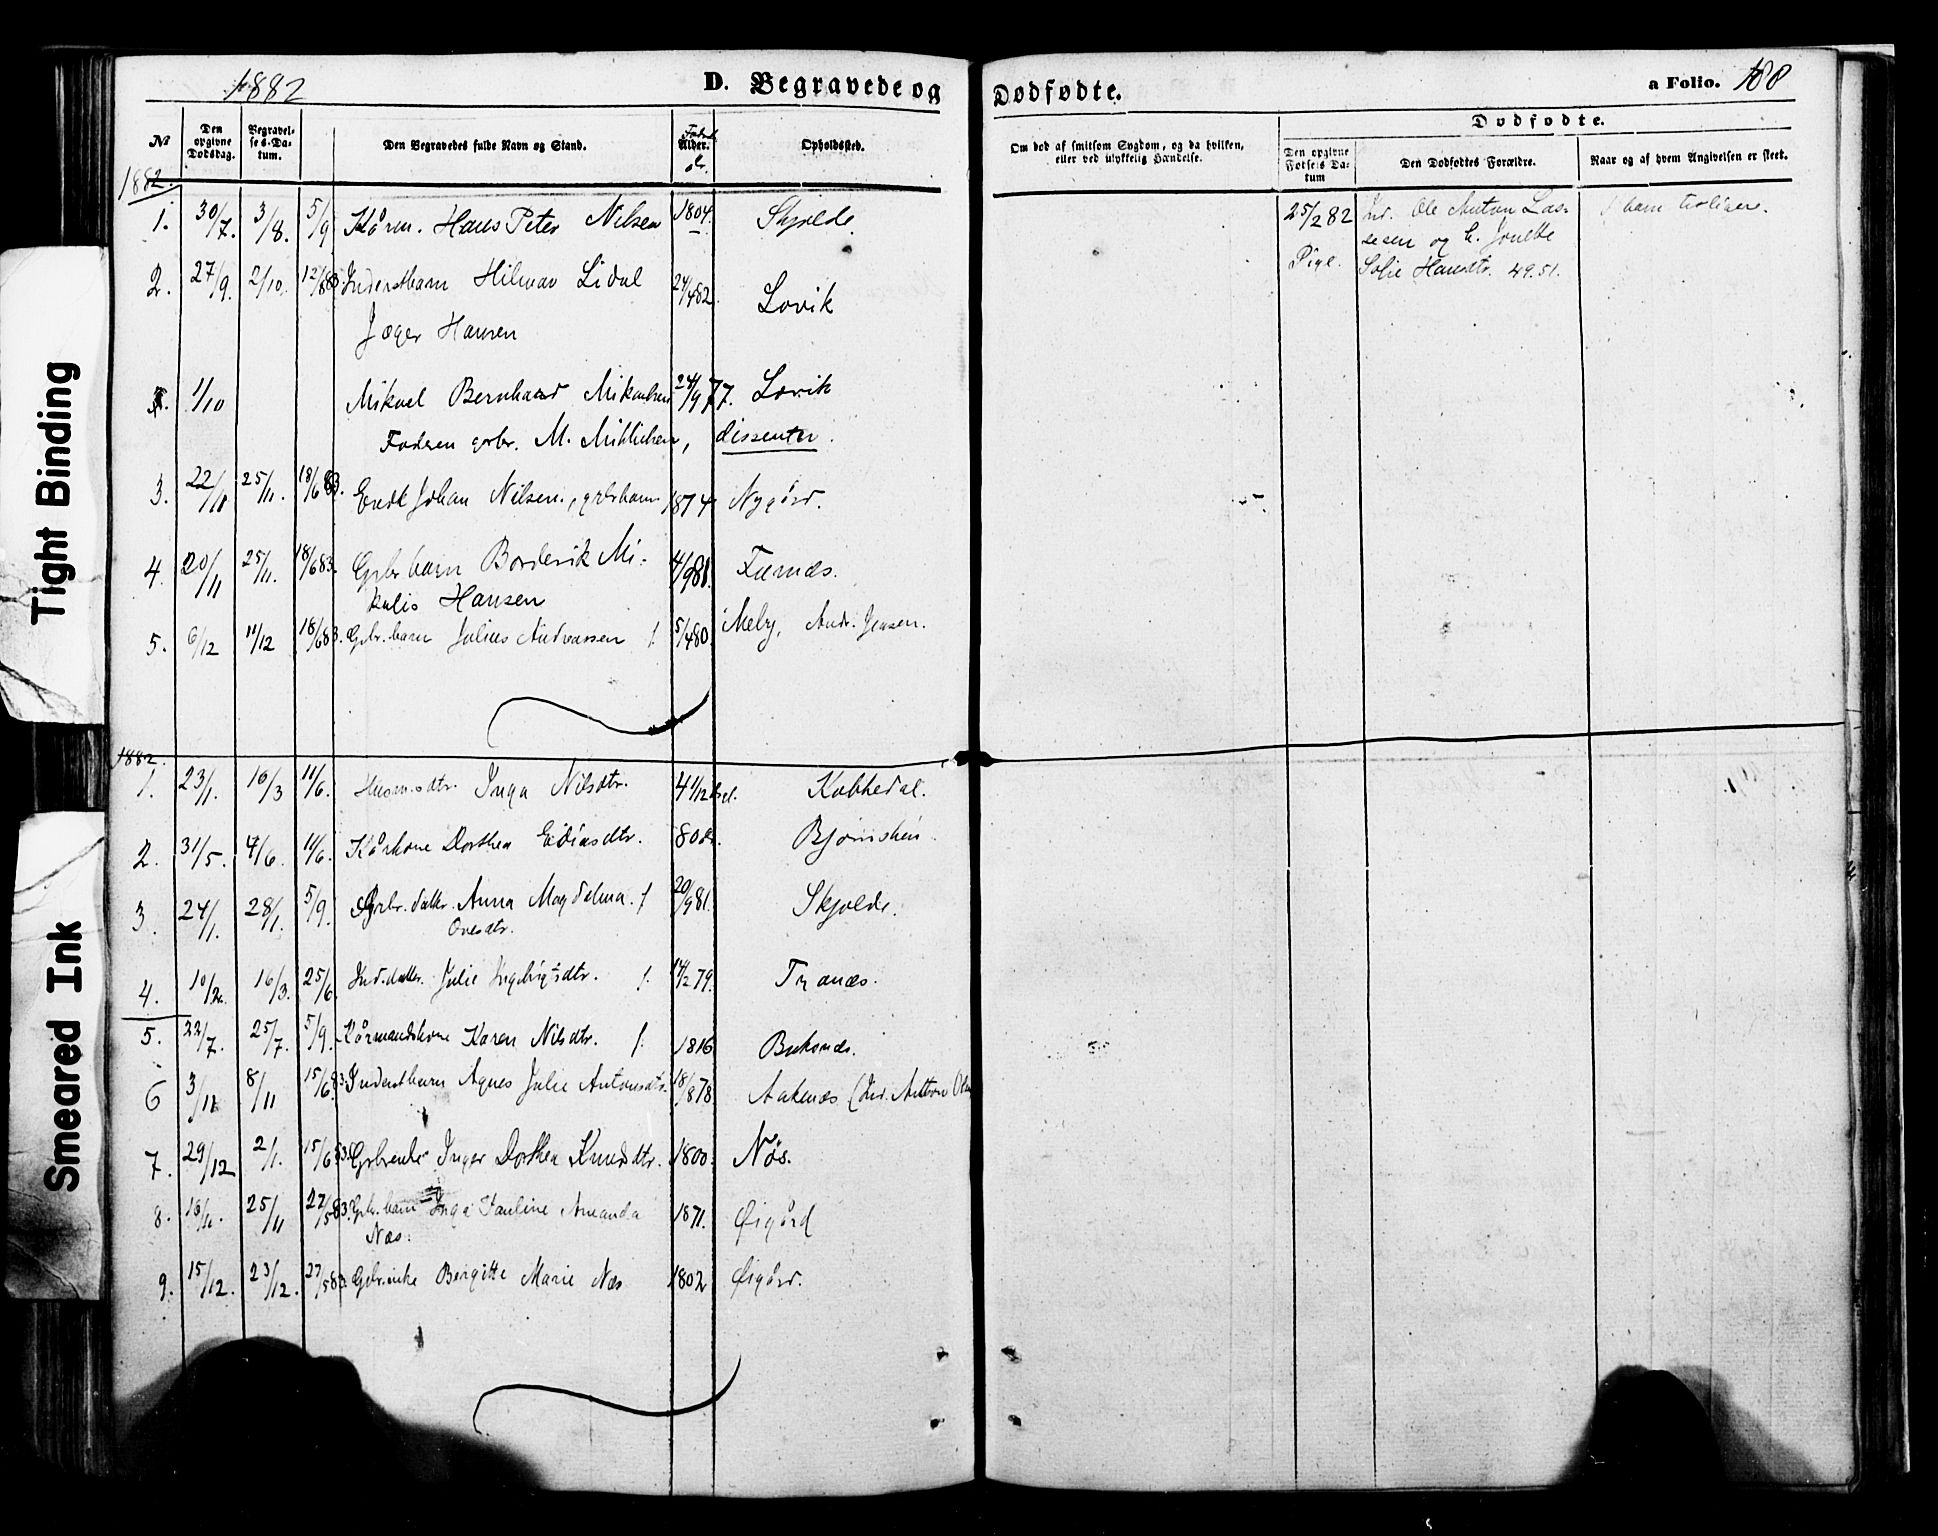 1882
D. Begravede og
Dødfødte.
a Folio. 188
№
Den opgivne Dødsdag.
Begravelses-Datum.
Den Begravedes fulde Navn og Stand.
Alder.
Opholdssted.
Om død af smitsom Sygdom, og da hvilken,
eller ved ulykkelig Hændelse.
Dødfødte.
Den opgivne Fødsels Datum
Den Dødfødtes Forældre.
Naar og af hvem Angivelsen er skeet.
1882.
1. 30/7. 3/8. 5/9 Kårm. Hans Peter Nilsen 1804. Skjolde.
2. 27/9. 2/10. 12/6 83 Inderstbarn Hilmar Lidal 24/4 82 Lovik
Jæger Hansen
1/10 Mikael Bernhard Mikaelsen 24/9 77. Lovik
Faderen grbr. M. , dissenter.
3. 22/11 25/11. 18/6 83. Enok Johan Nilsen, grbrbarn 1874 Nygård.
4. 20/11 25/11. 18/6 83. Grbrbarn Borderik Mi-
kalis Hansen 4/9 81.
5. 6/12 11/12 18/6 83. Grbr.barn Julius Andreassen /. 5/4 80. Meby, Andr. Jensen.
25/2 82 Ind. Ole Anton Las-
sesen og h. Jonette
Pige. Sofie Hansdtr. 49.51.
barn tidligere.
1882.
1. 23/1. 10/3 11/6. Husm.sdtr. Inga Nilsdtr. 4 1/12 Kobbedal.
2. 31/5. 4/6. 11/6. Kårkone Dorthea Ediasdtr. 80 år. Bjørnskin
3. 24/1. 28/1. 5/9. Grbr.datter Anna Magdalena / 20/9 81. Skjolde.
Ovesdtr.
4. 10/2. 16/3. 25/6. Ind.datter Julie Ingebrigtsdtr. /. 14/2 79. Tranæs.
5. 22/7. 25/7. 5/9. Kårmandskone Karen Nilsdtr. /. 1816 Buksnæs.
6 3/11 8/11 15/6 83 Inderstbarn Agnes Julie Antonsdtr. 18/8 78 Aaknæs (Ind. Anton
7. 29/12 2/1. 15/6 83. Grbrenke Inger Dorthea Knudsdtr. 1800. Nøs.
8. 16/11. 25/11 27/5 83. Grbr.barn Inga Pauline Amanda 1871. Øigård
Næs.
9. 15/12. 23/12. 27/5 83 Grbr.enke Bergitte Marie Næs 1802 Øigård.
Tight Binding
Smeared Ink